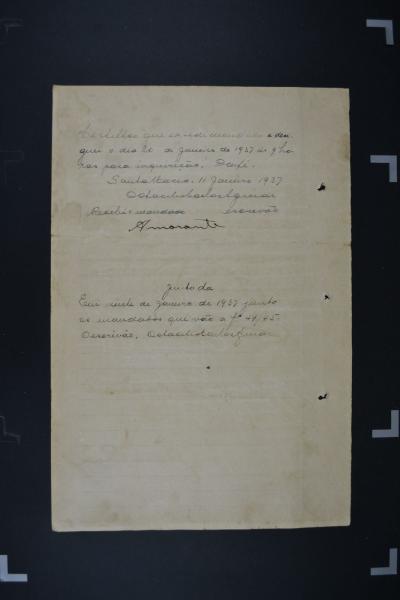 Certifico que expedi mandado e desi
guei o dia 21 de Janeiro de 1937 ás 9 ho
ras para inquirição. Doufé.
Santa Maria, 11 Janeiro 1937
Octacilio Carlos Aguiar
Recebi o mandado escrivão
Amarante
Juntada
Em vinte de Janeiro de 1937 junto
os mandados que vão a fs 44, 45.
O escrivão, Octacilio Carlos Aguiar